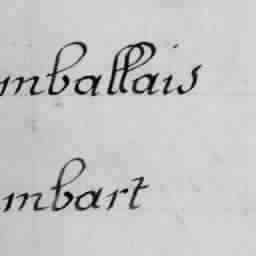 mballais
mbart